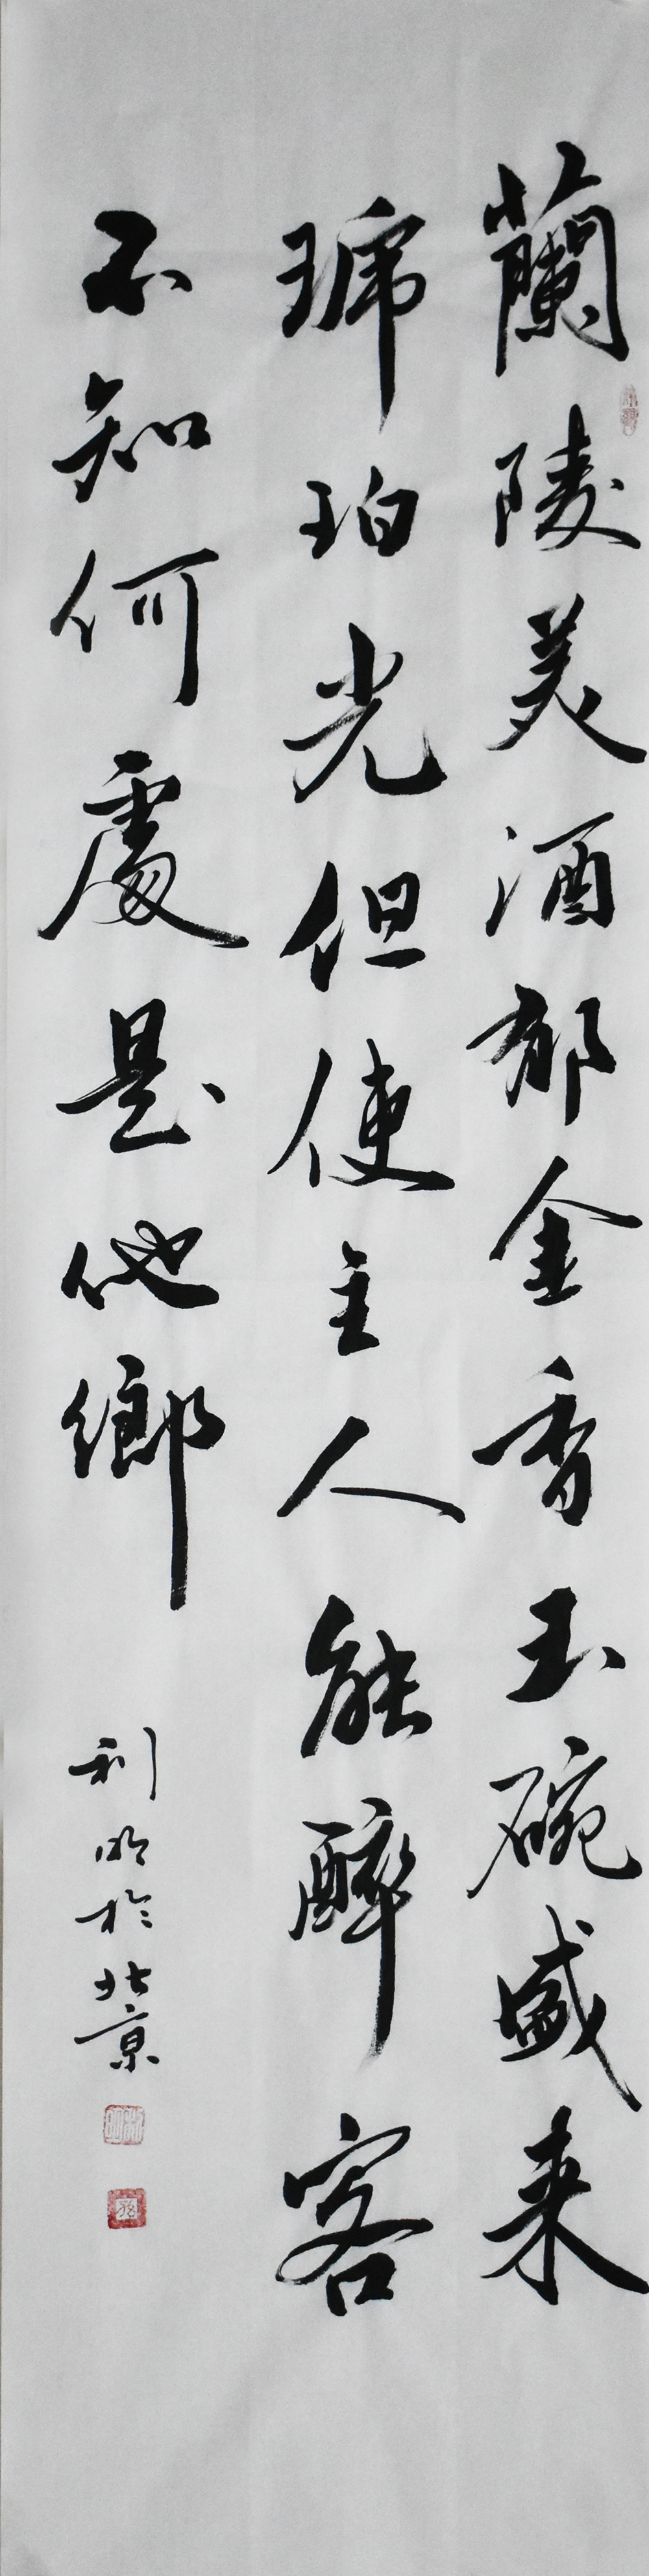 蘭陵美酒郁金香玉碗盛来
琥珀光但使主人能醉客
不知何處是他鄉
利明於北京